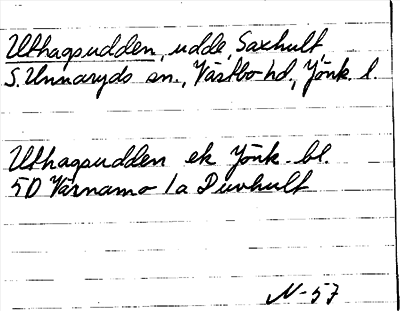 Uthagsudden, udde, Saxhult,
S. Unnaryds sn., Västbo hd., Jönk. l.
Uthagsudden ek Jönk. bl.
5D Värnamo 1a Duvhult
N-57